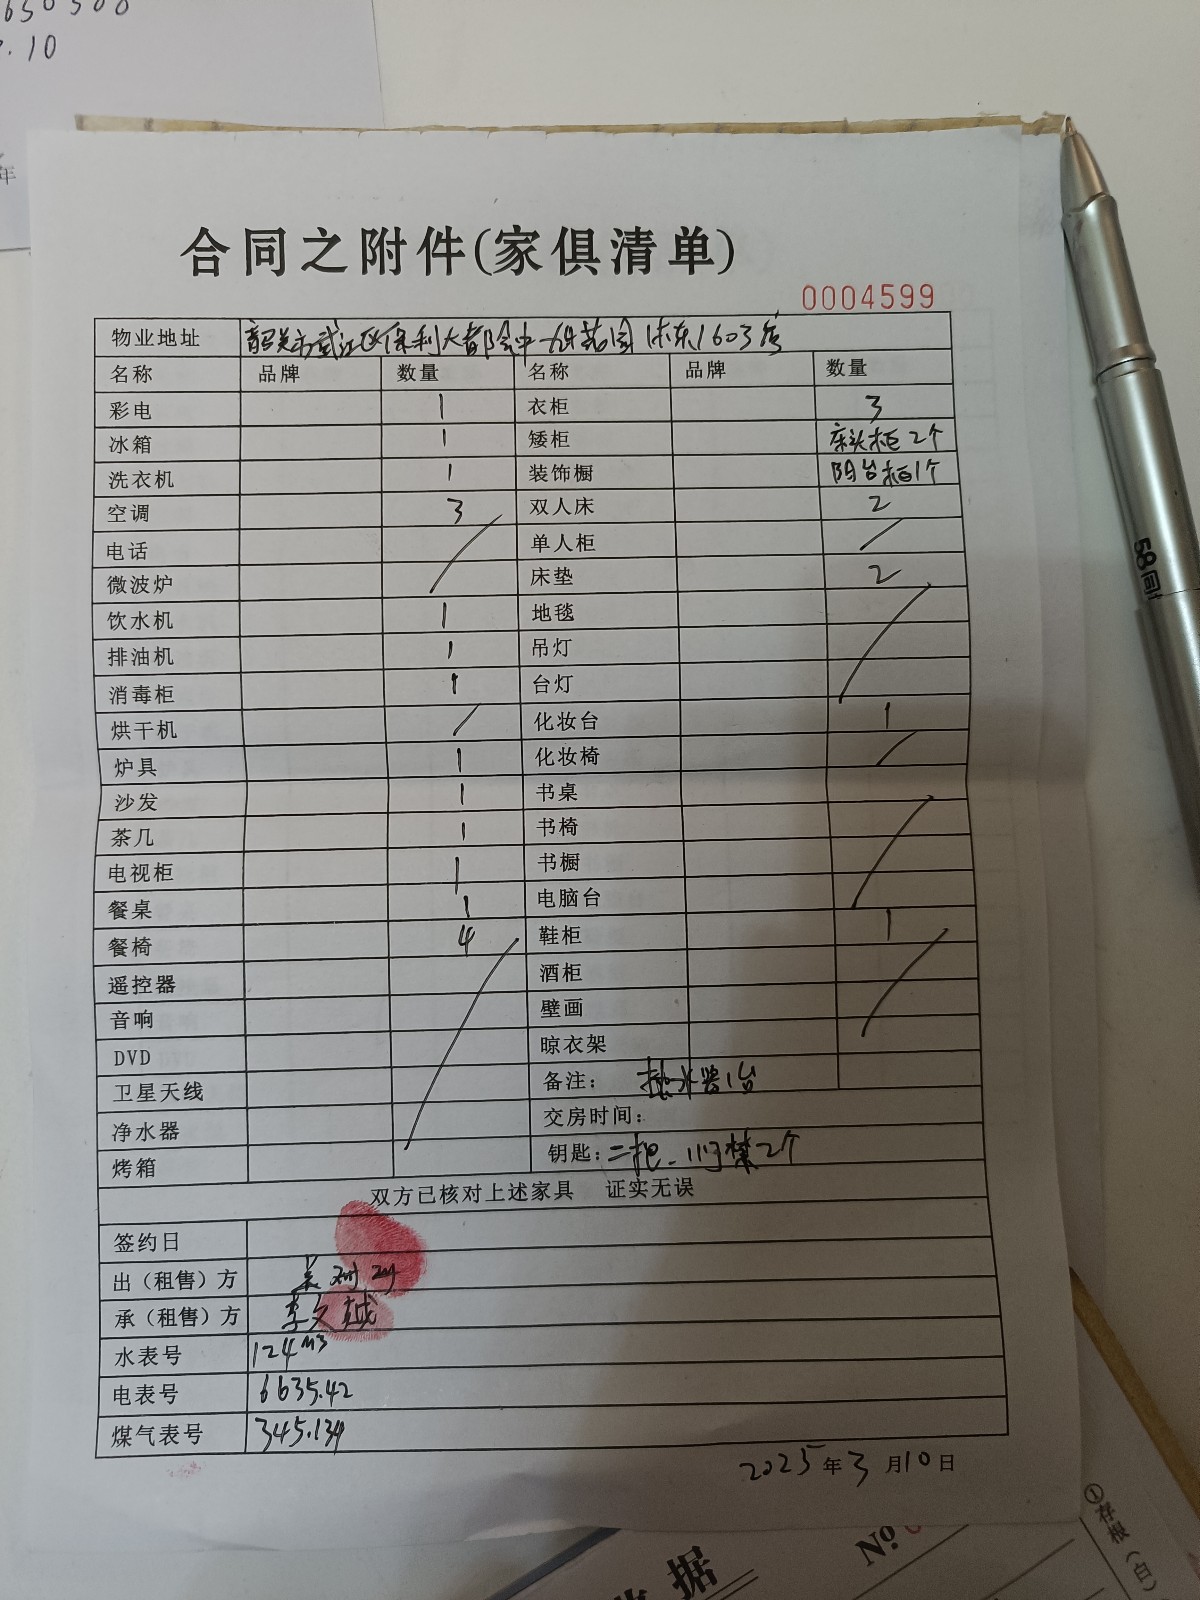 650500
.10
年
合同之附件(家俱清单)
0004599
物业地址 韶关市武江区保利大都会中 花园 东1603房
名称 品牌 数量 名称 品牌 数量
彩电 1 衣柜 3
冰箱 1 矮柜 床头柜2个
洗衣机 1 装饰橱 阳台柜1个
空调 3 双人床 2
电话 单人柜 /
微波炉 床垫 2
饮水机 1 地毯
排油机 1 吊灯
消毒柜 1 台灯
烘干机 / 化妆台 1
炉具 1 化妆椅 /
沙发 1 书桌
茶几 1 书椅
电视柜 1 书橱
餐桌 1 电脑台
餐椅 4 鞋柜 1
遥控器 酒柜
音响 壁画
DVD 晾衣架
卫星天线 备注: 热水器1台
净水器 交房时间:
烤箱 钥匙:二把 门禁2个
双方已核对上述家具 证实无误
签约日
出（租售）方
承（租售）方 李文越
水表号 124M3
电表号 6635.42
煤气表号 345.134
2025年3月10日
58同
收据
No
①存根(白)